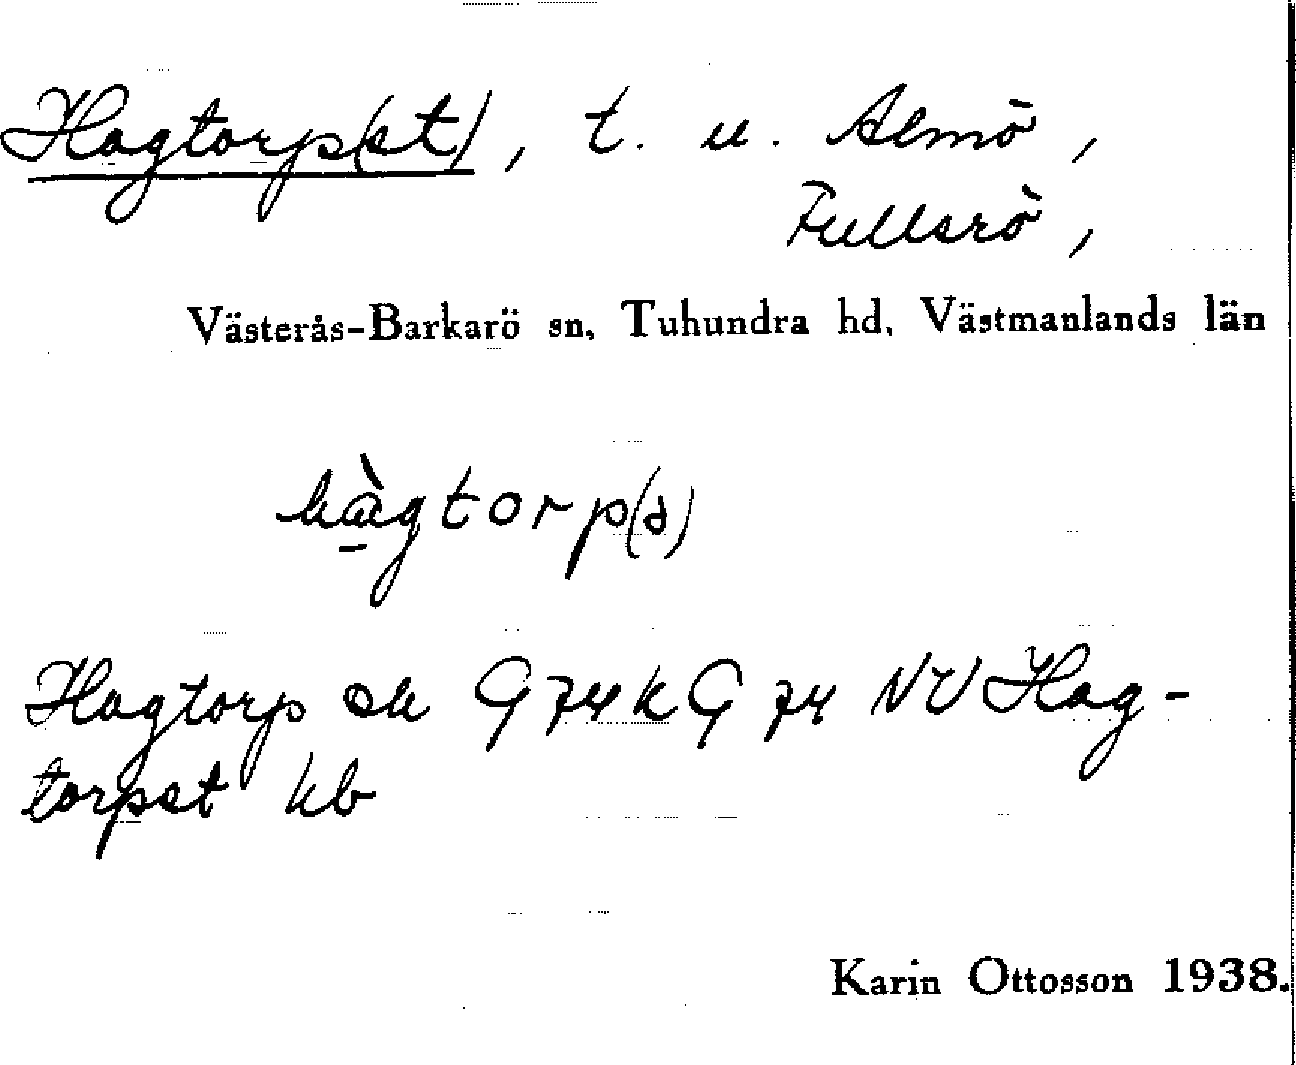 Hagtorp(et), t. u. Almö,
Fullerö,
Västerås-Barkarö sn, Tuhundra hd, Västmanlands län
hàgtorp(ə)
Hagtorp ek G 74 k G 74 NV Hag-
torpet kb
Karin Ottosson 1938.